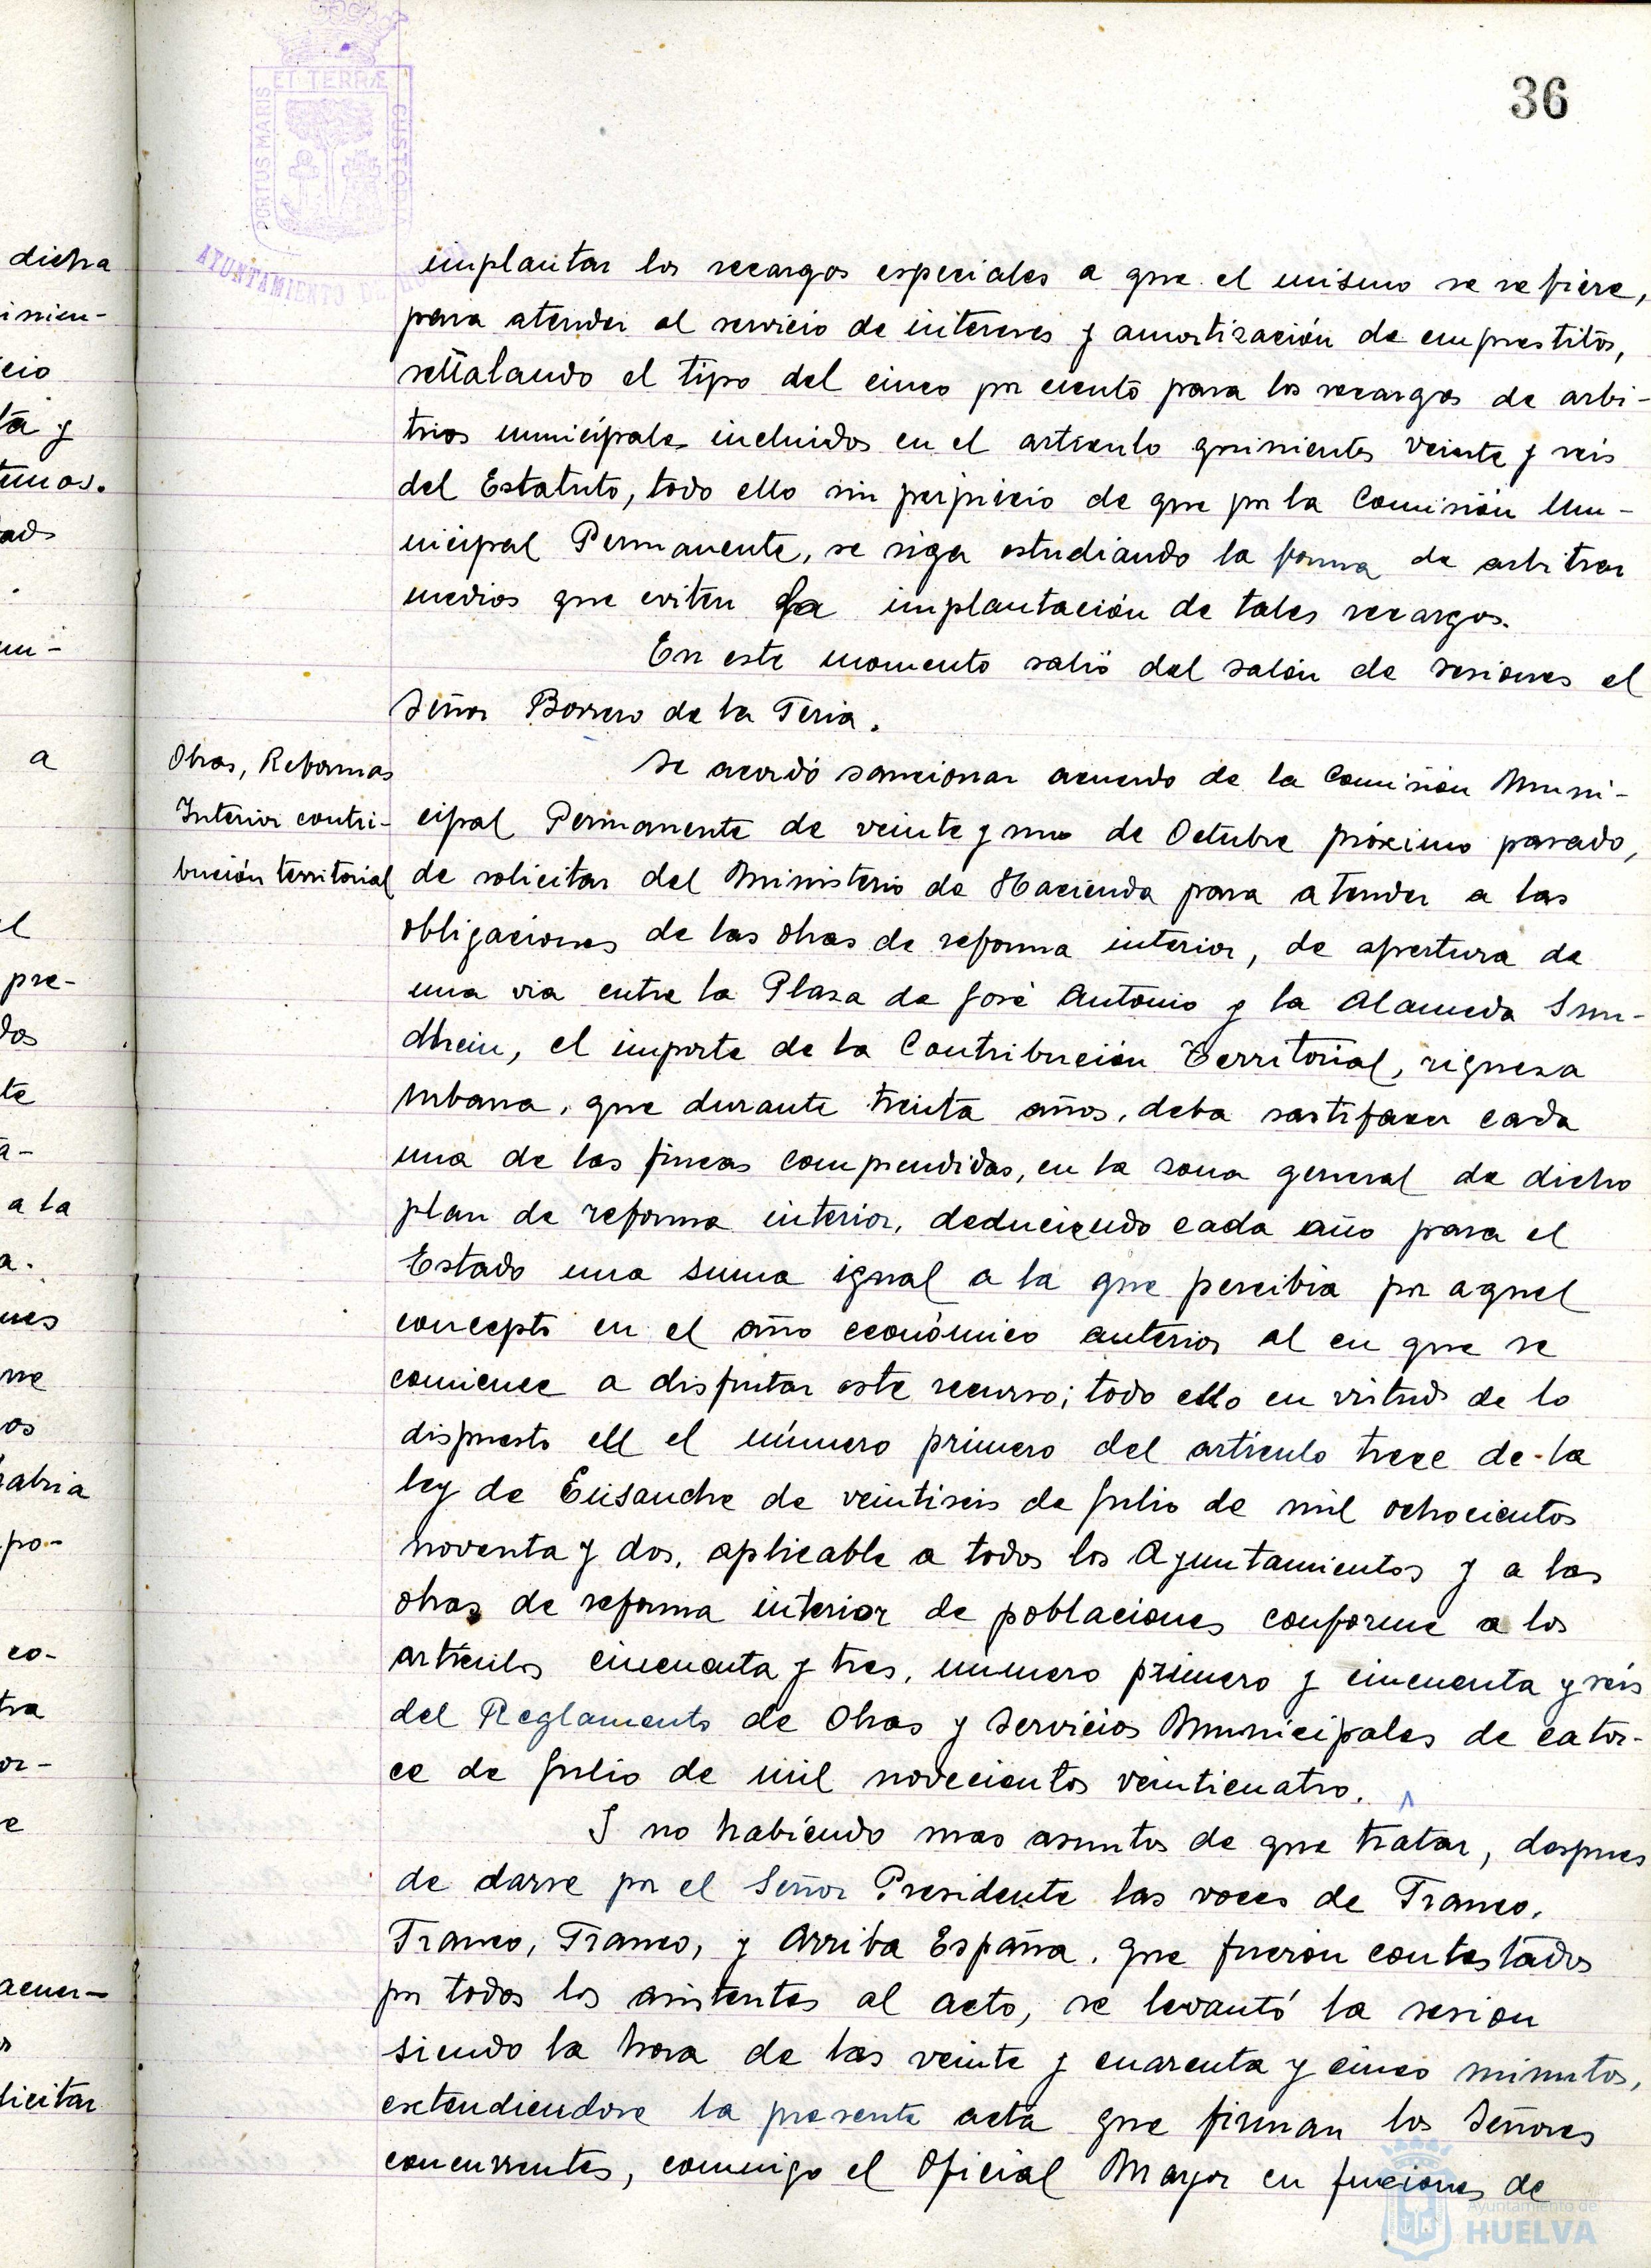 36
PORTUS MARIS
ET TERRÆ
CUSTODIA
AYUNTAMIENTO DE
dicha
cio
ta y
a
el
pre-
dos
te
a la
a.
po-
co-
tra
or-
e
acuer-
licitar
implantar los recargos especiales a que el mismo se refiere,
para atender al servicio de intereses y amortización de emprestitos,
señalando el tipo del cinco por ciento para los recargos de arbi-
trios municipales incluidos en el articulo quinientos veinte y seis
del Estatuto, todo ello sin perjuicio de que por la Comisión Mu-
nicipal Permanente, se siga estudiando la forma de arbitrar
medios que eviten la implantación de tales recargos.
En este momento salió del salón de sesiones el
Señor Borrero de la Feria.
Obras, Reformas
Interior contri-
bución territorial
Se acordó sancionar acuerdo de la Comisión Muni-
cipal Permanente de veinte y uno de Octubre próximo pasado,
de solicitar del Ministerio de Hacienda para atender a las
obligaciones de las obras de reforma interior, de apertura de
una via entre la Plaza de José Antonio y la Alameda Sun-
dhein, el importe de la Contribución Territorial, riqueza
urbana, que durante treinta años, deba sastifacer cada
una de las fincas comprendidas, en la zona general de dicho
plan de reforma interior, deduciendo cada año para el
Estado una suma igual a la que percibia por aquel
concepto en el año económico anterior al en que se
comience a disfrutar este recurso; todo ello en virtud de lo
dispuesto en el número primero del articulo trece de la
ley de Ensanche de veintiseis de Julio de mil ochocientos
noventa y dos, aplicable a todos los Ayuntamientos y a las
obras de reforma interior de poblaciones conforme a los
articulos cincuenta y tres, numero primero y cincuenta y seis
del Reglamento de Obras y Servicios Municipales de cator-
ce de Julio de mil novecientos veinticuatro.
Y no habiendo mas asuntos de que tratar, despues
de darse por el Señor Presidente las voces de Franco,
Franco, Franco, y Arriba España, que fueron contestados
por todos los asistentes al acto, se levantó la sesion
siendo la hora de las veinte y cuarenta y cinco minutos,
extendiendose la presente acta que firman los Señores
concurrentes, conmigo el Oficial Mayor en funciones de
Ayuntamiento de
HUELVA